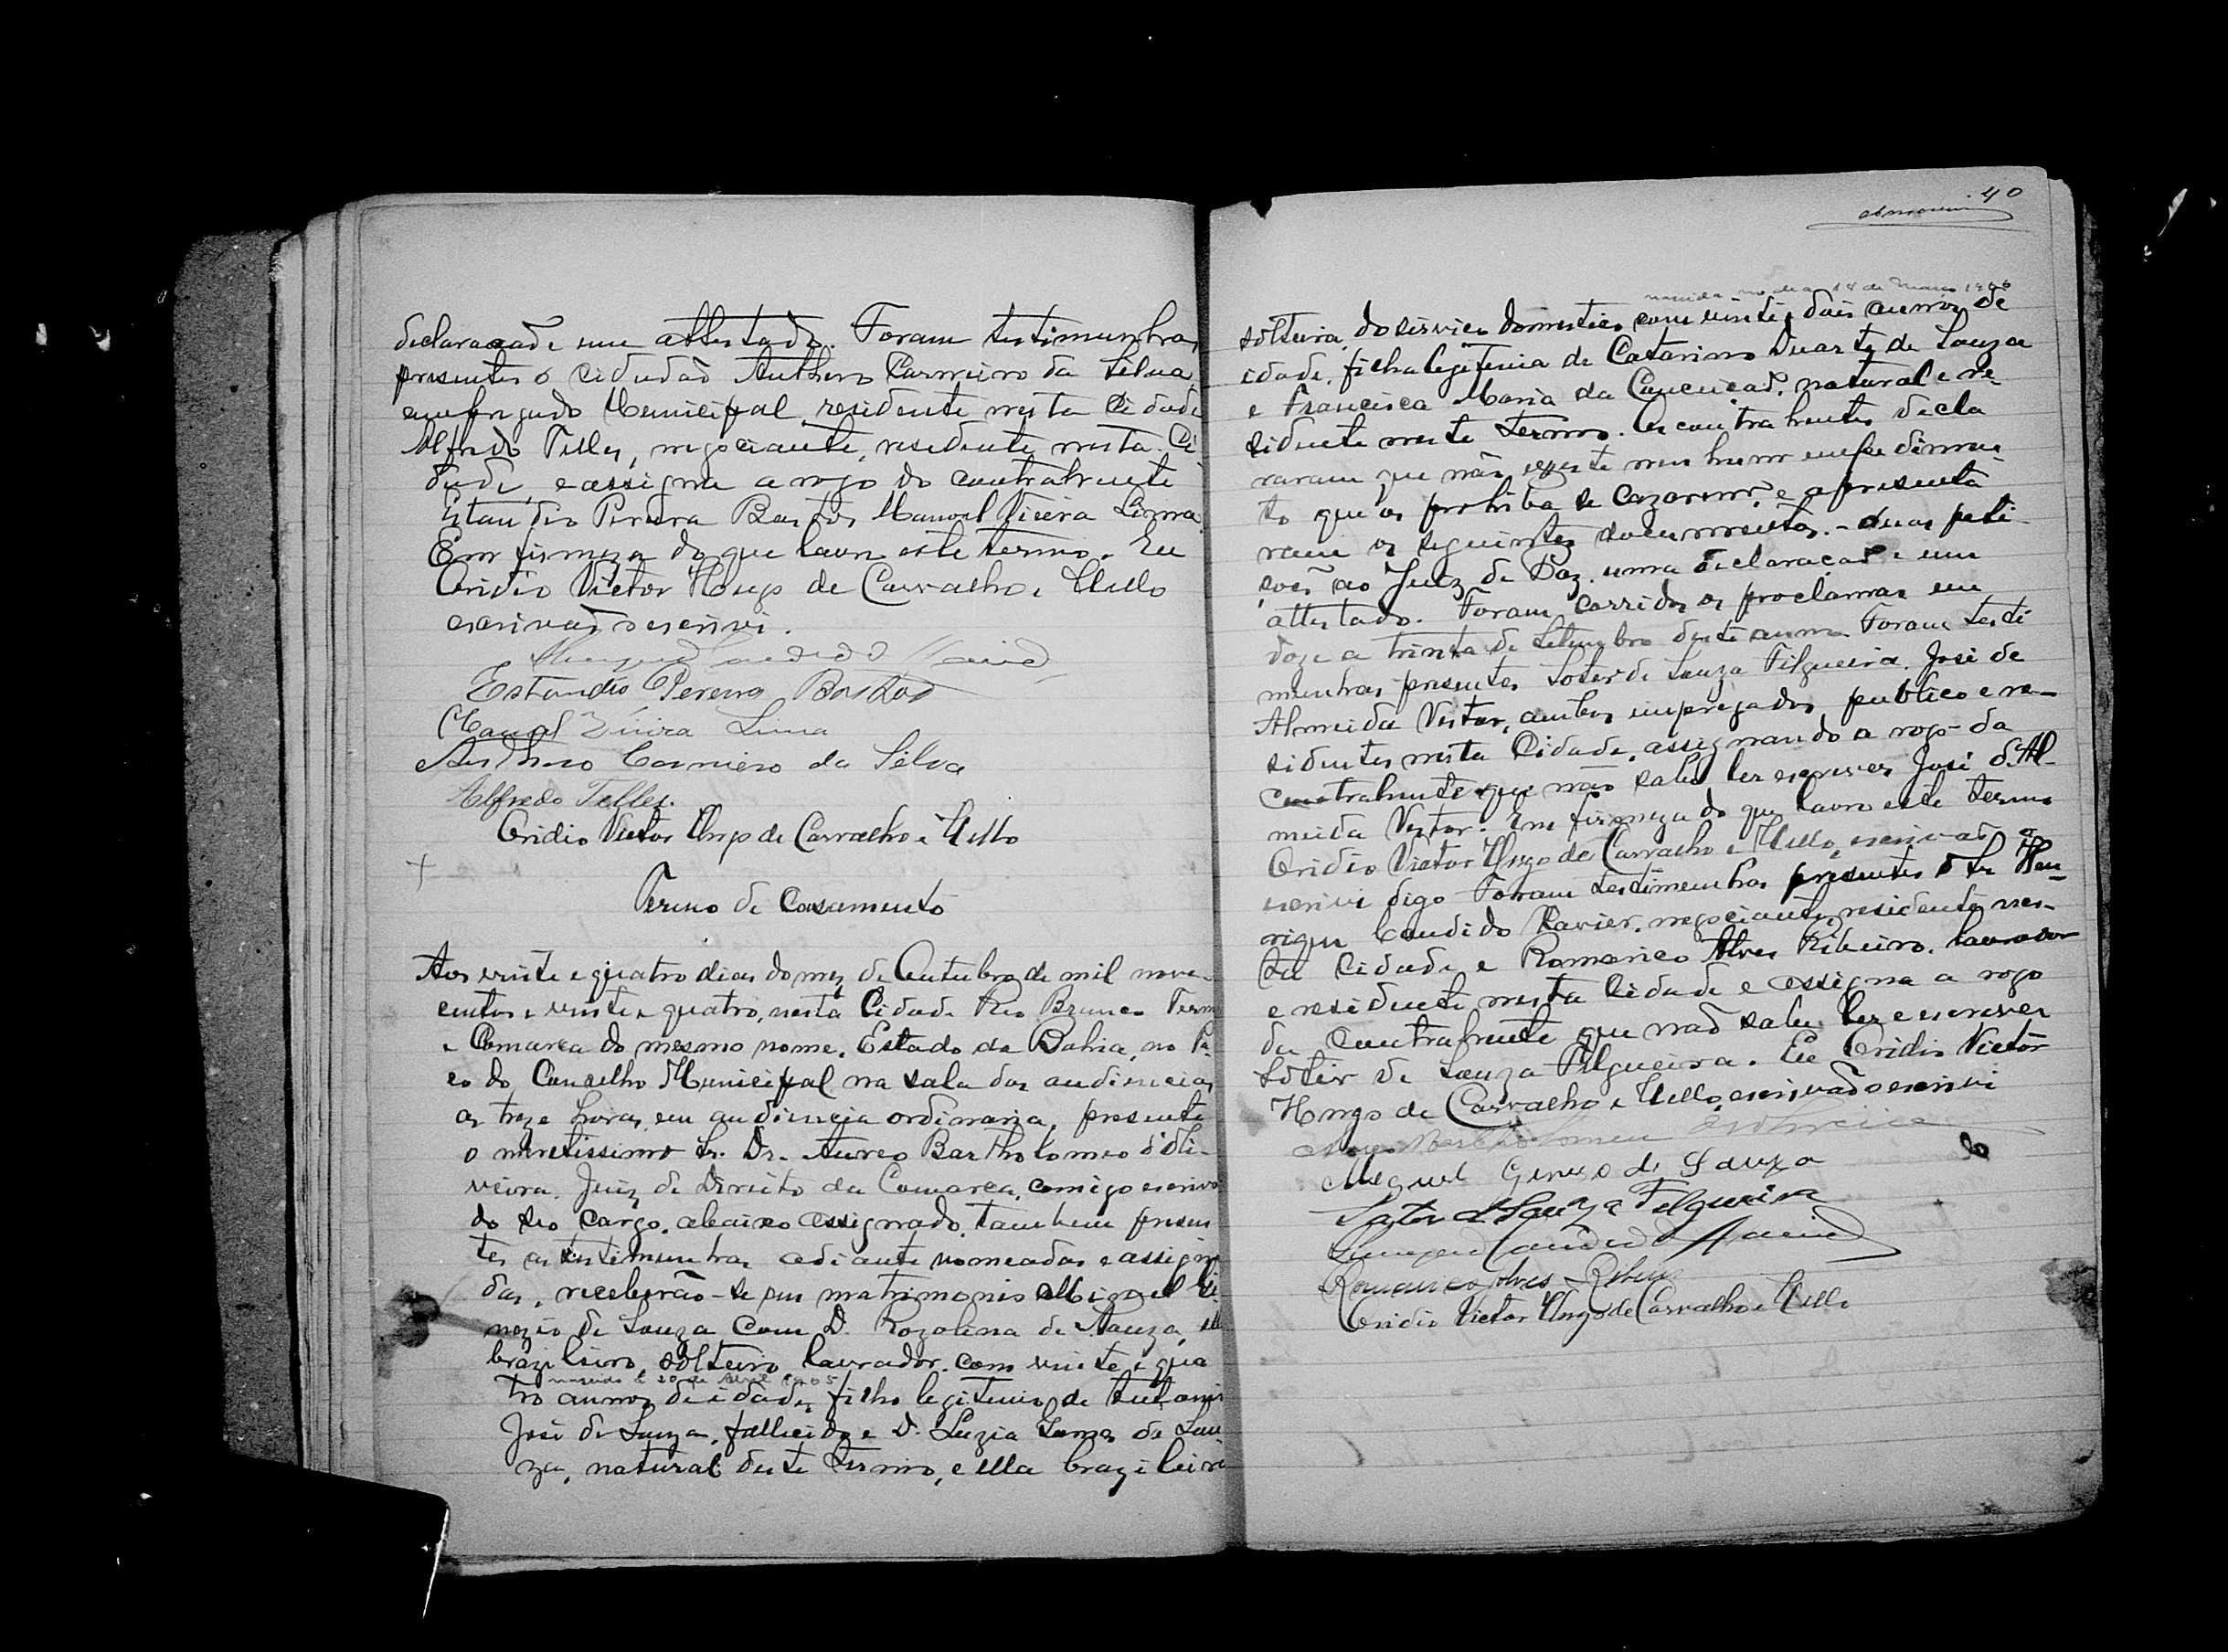 declaração de um attestado. Foram testimunhas
presentes o Cidadão Anthero Carneiro da Silva,
empregado Municipal, residente nesta Cidade
Alfredo Telles, negociante, residente nesta Ci
dade, e assigna a rogo do contratrente
Pereira Bastos Manoel Vieira Lima.
Em firmeza do que lavro este termo. Eu
Victor Hugo de Carvalho e Mello
escrivão o escrivi.
Pereira Bastos
Manoel Vieira Lima
Anthero Carneiro da Silva
Alfredo Telles.
Victor Hugo de Carvalho e Mello
Termo de Casamento
Aos vinte e quatro dias do mez de Outubro de mil nove-
centos e vinte e quatro, nesta Cidade Rio Branco Termo
e Comarca do mesmo nome, Estado da Bahia, no Pa-
ço do Conselho Municipal na sala das audiencias
as treze horas, em audiencia ordinaria, presente
o meretissimo Sr. Dr. Aureo Bartholomeo d'Oli-
veira, Juiz de Direito da Comarca, comigo escrivão
do seo cargo, abaixo assignado, tambem presen
tes as testimunhas adiante nomeadas e assigna
das, receberão-se em matrimonio Miguel Ge
nezio de Souza com D. Rozolina de Souza, elle
brazileiro, solteiro, lavrador, com vinte e qua
nascido a 20 de Abril 1905
tro annos de idade, filho legitimo de Antonio
José de Souza, fallecido e D. Luzia de Sou
za, natural deste termo, e ella brazileira
40
nascida no dia 14 de Março
solteira, do serviço domestico com vinte, dois annos de
idade, filha legitima de Catarino Duarte de Souza
e Francisca Maria da Conceição, natural e re-
sidente neste termo. Os contrahentes decla
raram que não existe nenhum empedimen-
to que os prohiba se cazarem e apresenta
ram os seguintes documentos. - duas peti
ções ao Juiz de Paz, uma declaração e um
attestado. Foram corridos os proclamas em
doze a trinta de Setembro deste anno. Foram testi
munhas presentes Soter de Souza Filgueira, José de
Almeida Vistor, ambos empregados publico e re-
sidentes nesta Cidade, assignando a rogo da
Contrahente que não sabe ler escrever José d'Al-
meida Vistor. Em firmeza do que lavro este termo
Victor Hugo de Carvalho e Mello, escrivão o
escrivi digo Foram testimunhas presentes o Sr. Hen-
rique Candido Xavier, negociante, residente nes-
ta Cidade e Romarico Alves Ribeiro, lavrador
e residente nesta Cidade e assigna a rogo
da Contrahente que não sabe ler e escrever
Soter de Souza Filgueira. Eu Victor
Hugo de Carvalho e Mello, escrivão o escrivi
Bartholomeu d'Oliveira
Miguel Genezo de Souza
Soter de Souza Filgueira
Candido Xavier
Romarico Alves Ribeiro
Victor Hugo de Carvalho e Mello